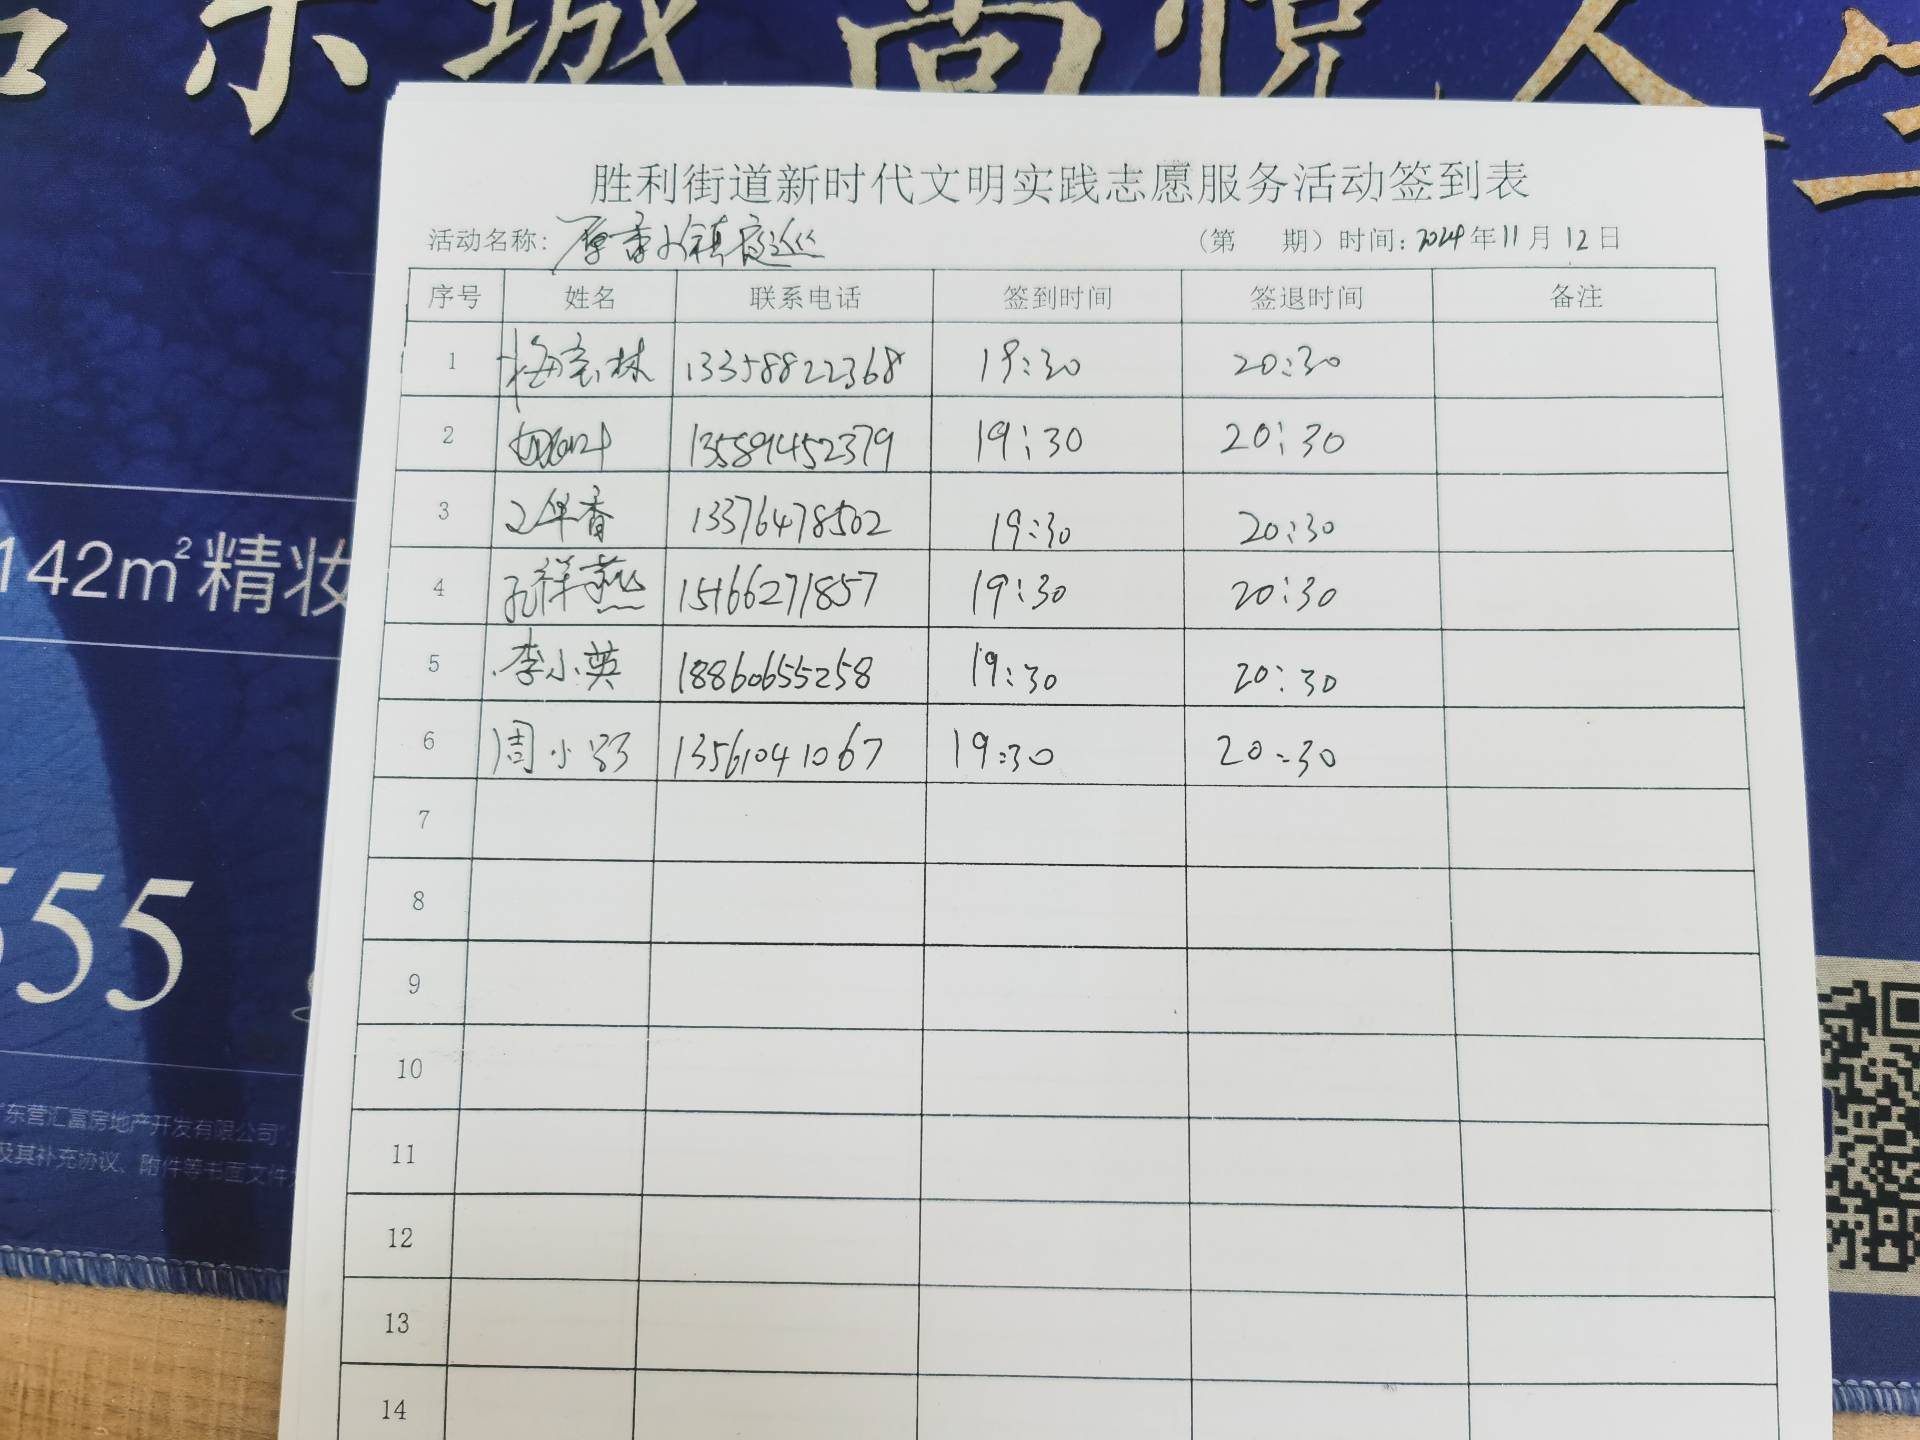 东城 尚悦人生
142m²精妆
555
东营汇富房地产开发有限公司
及其补充协议、附件等书面文件
胜利街道新时代文明实践志愿服务活动签到表
活动名称: 香小镇夜巡 (第 期) 时间: 2024年11月12日
序号 姓名 联系电话 签到时间 签退时间 备注
1 梅宝林 13358822368 19:30 20:30
2 13589452379 19:30 20:30
3 王华香 13376478502 19:30 20:30
4 孔祥燕 15166271857 19:30 20:30
5 李小英 18860655258 19:30 20:30
6 周小 13561041067 19:30 20:30
7
8
9
10
11
12
13
14